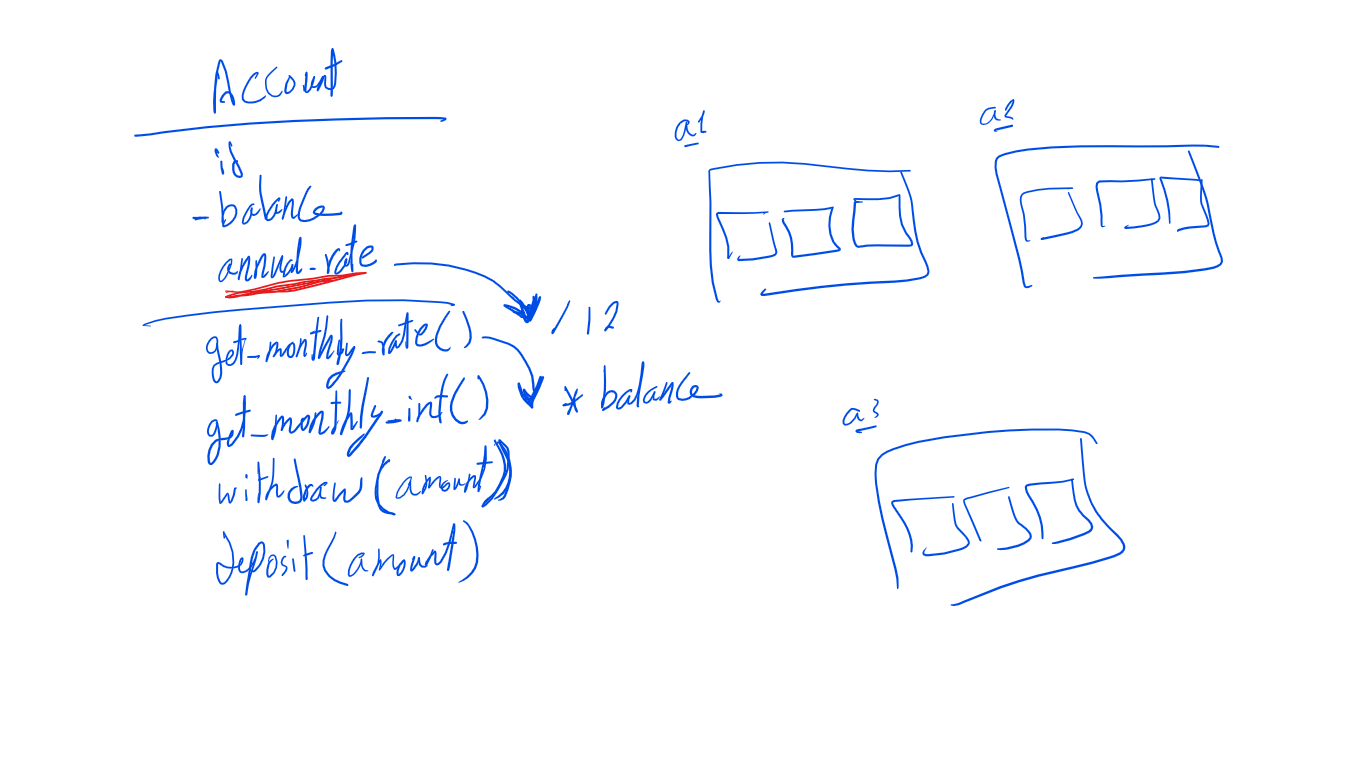 Account
id
-balance
annual_rate
/ 12
get_monthly_rate()
* balance
get_monthly_int()
withdraw(amount)
deposit(amount)
a1
a2
a3